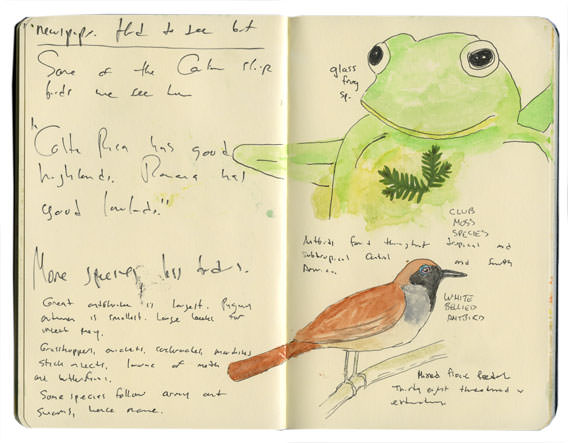 "newspaper. Hard to see but
Some of the
birds we see
"Costa Rica has good
highlands. Panama has
good lowlands."
More species, less birds.
Great antshrike is largest. Pygmy
antwren is smallest. Large beaks for
insect prey.
Grasshoppers, crickets, cockroaches, mantises
stick insects, larvae of moth
and butterflies.
Some species follow army ant
swarms, hence name.
glass
frog
sp.
CLUB
MOSS
SPECIES
Antbirds found throughout tropical and
subtropical Central and South
America.
WHITE
BELLIED
ANTBIRD
Mixed flock feeders
Thirty eight threatened w
extinction